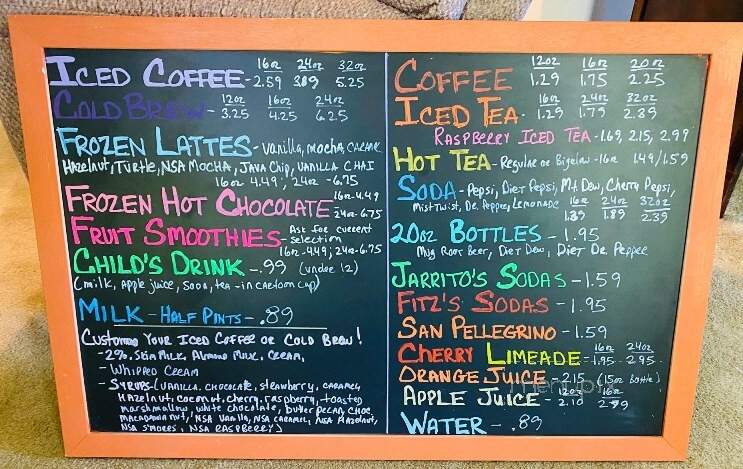 16oz 24oz 32oz
ICED COFFEE - 2.59 3.89 5.25
12oz 16oz 24oz
COLD BREW - 3.25 4.25 6.25
FROZEN LATTES - vanilla, mocha, caramel
Hazelnut, Turtle, NSA Mocha, Java Chip, Vanilla Chai
16oz 4.49, 24oz - 6.75
FROZEN HOT CHOCOLATE - 16oz - 4.49
24oz - 6.75
FRUIT SMOOTHIES - Ask for current
selection
16oz - 4.49, 24oz - 6.75
CHILD'S DRINK - .99 (under 12)
(milk, apple juice, soda, tea - in cartoon cup)
MILK - HALF PINTS - .89
Customize Your Iced Coffee or Cold Brew!
- 2%, Skim Milk, Almond Milk, Cream,
- Whipped Cream
- Syrups (Vanilla, chocolate, strawberry, caramel
Hazelnut, coconut, cherry, raspberry, toasted
marshmallow, white chocolate, butter pecan, choc
macadamia nut, NSA Vanilla, NSA caramel, NSA Hazelnut,
NSA S'mores, NSA Raspberry)
12oz 16oz 20oz
COFFEE 1.29 1.75 2.25
16oz 24oz 32oz
ICED TEA - 1.29 1.79 2.89
RASPBERRY ICED TEA - 1.69, 2.15, 2.99
HOT TEA - Regular or Bigelow - 16oz 1.49/1.59
SODA - Pepsi, Diet Pepsi, Mt. Dew, Cherry Pepsi,
Mist Twist, Dr. Pepper, Lemonade 16oz 24oz 32oz
1.89 2.39
20oz BOTTLES - 1.95
Mug Root Beer, Diet Dew, Diet Dr. Pepper
JARRITO'S SODAS - 1.59
FITZ'S SODAS - 1.95
SAN PELLEGRINO - 1.59
16oz 24oz
CHERRY LIMEADE - 1.95 2.95
ORANGE JUICE - 2.15 (15oz bottle)
12oz 16oz
APPLE JUICE - 2.10
WATER - .89